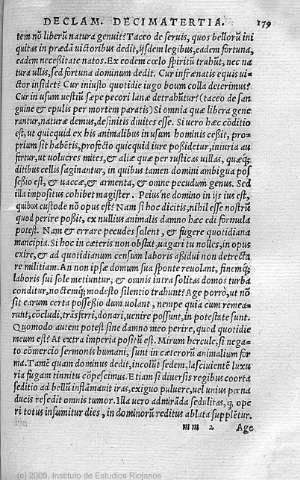 DECLAM. DECIMATERTIA. 179
tem nō liberū natura genuit? Taceo de seruis, quos bellorū ini
quitas in prædā victoribus dedit, ijsdem legibus, eadem fortuna,
eadem necessitate natos. Ex eodem cœlo spiritū trahūt, nec na
tura ullis, sed fortuna dominum dedit. Cur infrænatis equis ui
ctor insidet? Cur iniusto quotidie iugo boum colla deterimus?
Cur in usum uestiū sæpe pecori lanæ detrahūtur? (taceo de san
guine & epulis per mortem paratis) Si omnia quæ libera gene
rantur, naturæ demus, desinitis diuites esse. Si uero hæc cōditio
est, ut quicquid ex his animalibus in usum hominis cessit, pro-
prium sit habētis, profecto quicquid iure possidetur, iniuria au
firtur, ut uolucres mites, & aliæ quæ per rusticas uillas, quæq;
ditibus cellis saginantur, in quibus tamen domini ambigua pos
sessio est, & uaccæ, & armenta, & omne pecudum genus. Sed
illa impositus cohibet magister. Peius ne domino in ijs ius est,
quibus custode nō opus est? Nam si hoc dicitis, nihil esse nostrū
quod perire possit, ex nullius animalis damno hæc edi formula
potest. Nam & errare pecudes solent, & fugere quotidiana
mancipia. Si hoc in cæteris non obstat, uagari tu nolles, in opus
exire, & ad quotidianum censum laboris assidui non detrecta
re militiam. An non ipsæ domum sua sponte reuolant, finemq;
laboris sui sole metiuntur, & omnis intra solitas domos turba
conditur, noctemq; modesto silentio trahunt? Age porro, ut nō
sit earum certa possessio dum uolant, nempe quia cum remea-
runt, cōcludi, trāsferri, donari, uenire possunt, in potestate sunt.
Quomodo autem potest sine damno meo perire, quod quotidie
meum est? At extra imperia positū est. Mirum hercule, si nega-
to comercio sermonis humani, sunt in cæterorū animalium for
ma. Tamē quam dominus dedit, incolūt sedem, lasciuientē luxu
riā fugam tinnitu cōpescimus. Etiam si diuersis regibus coorta
seditio ad bellū inflāmauit iras, exiguo puluere, uel unius pœna
ducis resedit omnis tumor. Illa uero admirāda sedulitas, q̃ ope
ri totus insumitur dies, in dominorū reditus ablata suppletur.
2 Age
(c) 2009, Instituto de Estudios Riojanos